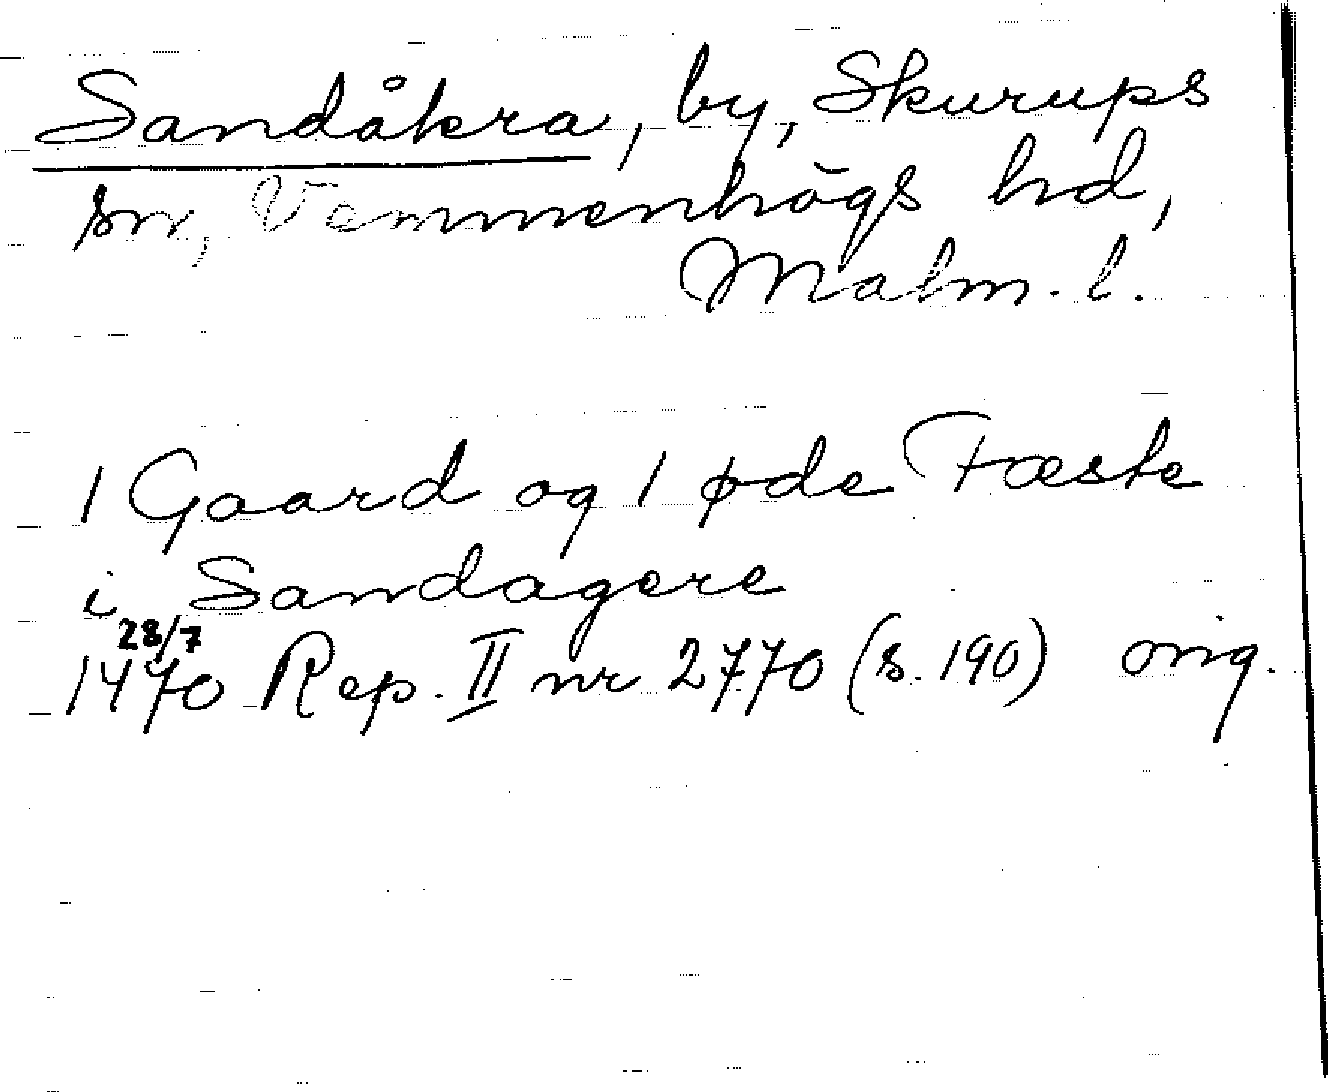 Sandåkra, by, Skurups
sn, Vemmenhögs hd,
Malm. l.
1 Gaard og 1 øde Fæste
i Sandagere
28/7
1470 Rep. II nr 2770 (s. 190) orig.